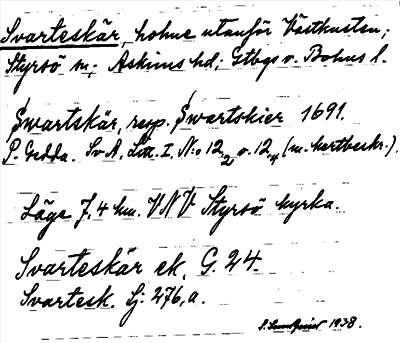 Svarteskär, holme utanför Västkusten;
Styrsö sn; Askims hd; Gtbgs o. Bohus l.
Swartskär, resp. Swartskier 1691.
P. Gedda. SvA, Litt. I, N:o 12,2 o. 12,4 (m. kartbeskr.).
Läge 7,4 km. VNV Styrsö kyrka.
Svarteskär ek. G. 24.
Svartesk. Sj. 276, a.
1938.